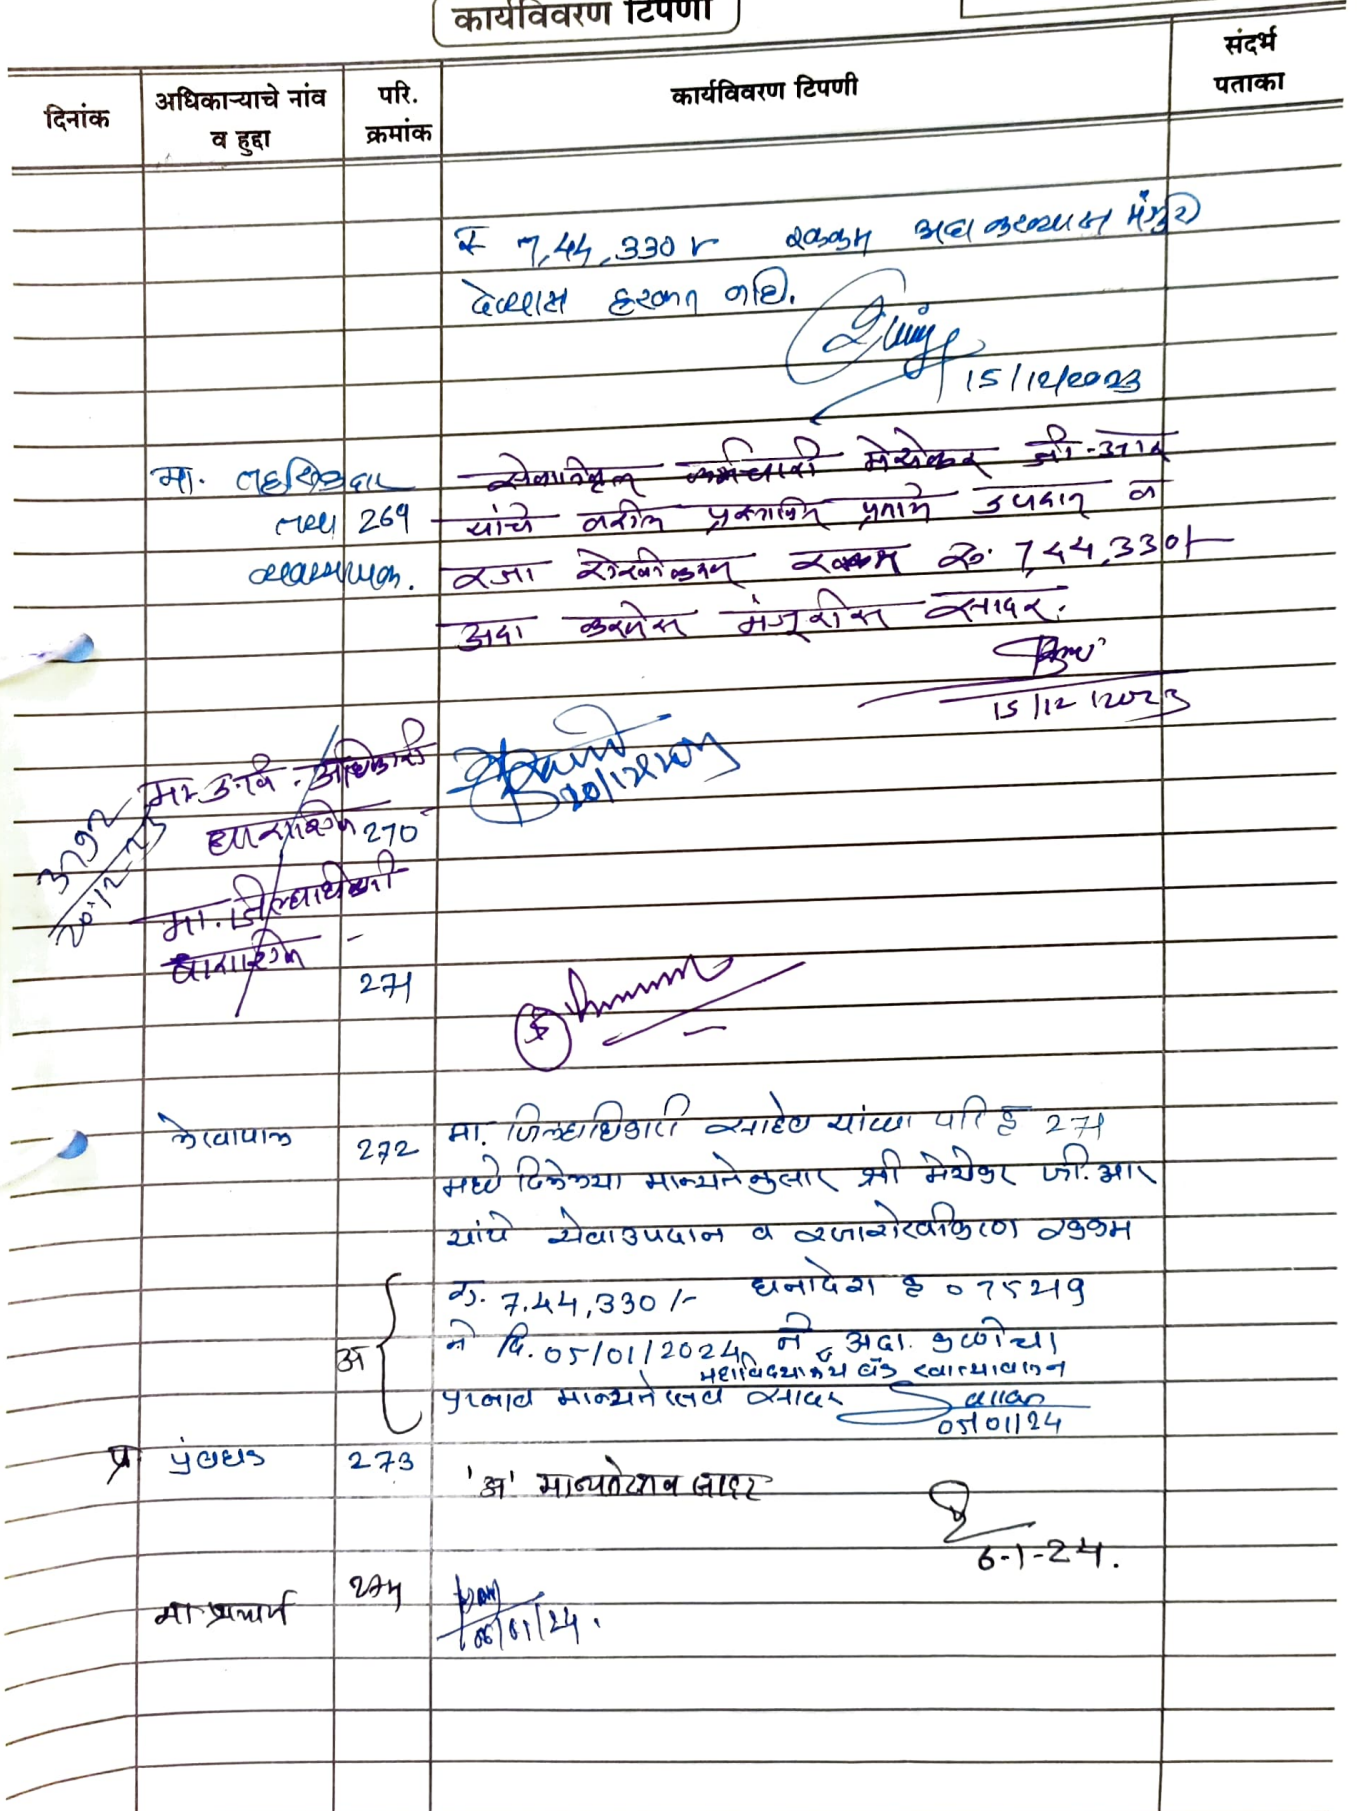 कार्यविवरण टिपणी
दिनांक
अधिकाऱ्याचे नांव व हुद्दा
परि. क्रमांक
कार्यविवरण टिपणी
संदर्भ पताका
रु 7,44,330/- रक्कम अदा करण्यास मंजुरी
देण्यास हरकत नाही.
15/12/2023
मा. तहसिलदार
सेवानिवृत्त कर्मचारी मेश्रेकर जी.आर
तथा 269
यांचे वरील प्रस्तावित प्रमाणे उपदान व
व्यवस्थापक.
रजा रोखीकरण रक्कम रु. 7,44,330/-
अदा करणेस मंजूरीस सादर.
15/12/2023
मा. उ.वि. अधिकारी
20/12/2023
धाराशिव 270
3792
20.12.23
मा. जिल्हाधिकारी
धाराशिव
271
लेखापाल
272
मा. जिल्हाधिकारी साहेब यांच्या परि क्र 271
मध्ये दिलेल्या मान्यतेनुसार श्री मेश्रेकर जी.आर
यांचे सेवाउपदान व रजारोखीकरण रक्कम
रु. 7,44,330/- धनादेश क्र 075219
अ
ने दि. 05/01/2024 ने अदा केलेचा
महाविद्यालय बँक खात्यावरुन
प्रस्ताव मान्यतेस्तव सादर
05/01/24
प्र प्रबंधक 273
'अ' मान्यतेस्तव सादर
6-1-24.
मा प्राचार्य
274
06/01/24.